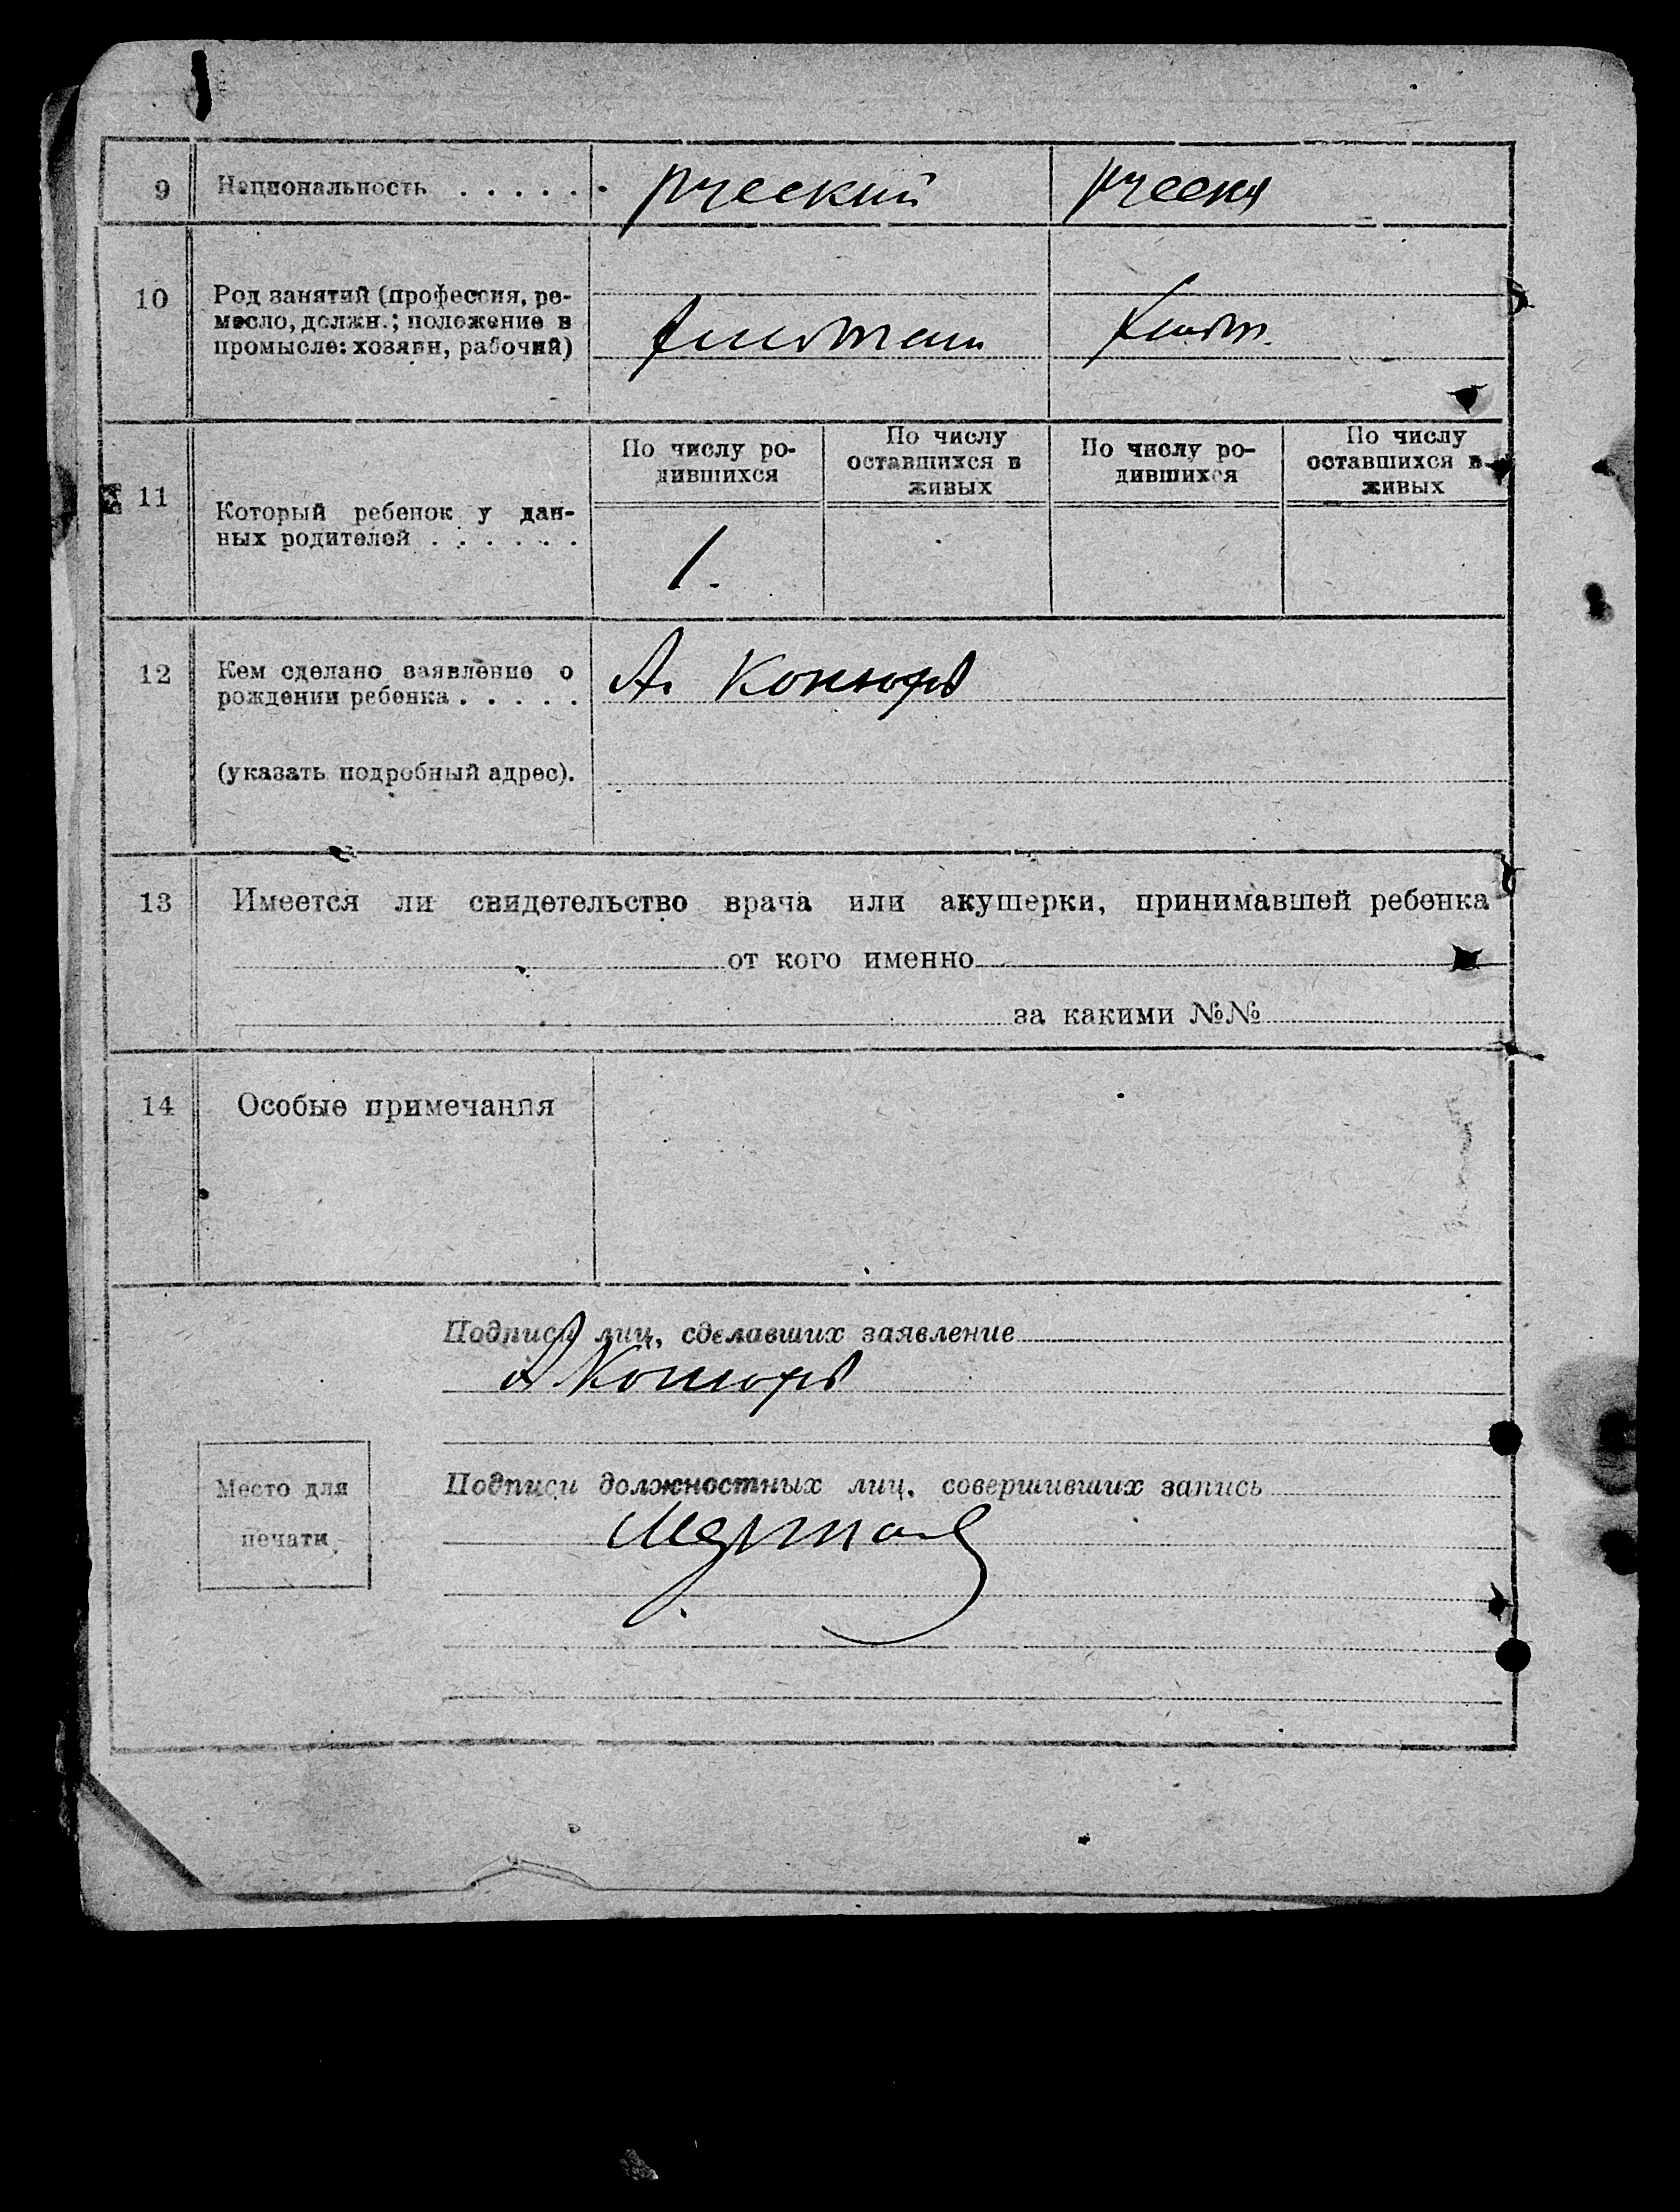 9 Национальность . . . . . . русский русская
10 Род занятий (профессия, ре-
месло, должн.; положение в
промысле: хозяин, рабочий)
По числу ро-
дившихся
По числу
оставшихся в
живых
По числу ро-
дившихся
По числу
оставшихся в
живых
11 Который ребенок у дан-
ных родителей . . . . . .
1.
12 Кем сделано заявление о
рождении ребенка . . . . .
А.
(указать подробный адрес).
13 Имеется ли свидетельство врача или акушерки, принимавшей ребенка
от кого именно
за какими №№
14 Особые примечания
Подписи лиц, сделавших заявление
Место для
печати
Подписи должностных лиц, совершивших запись